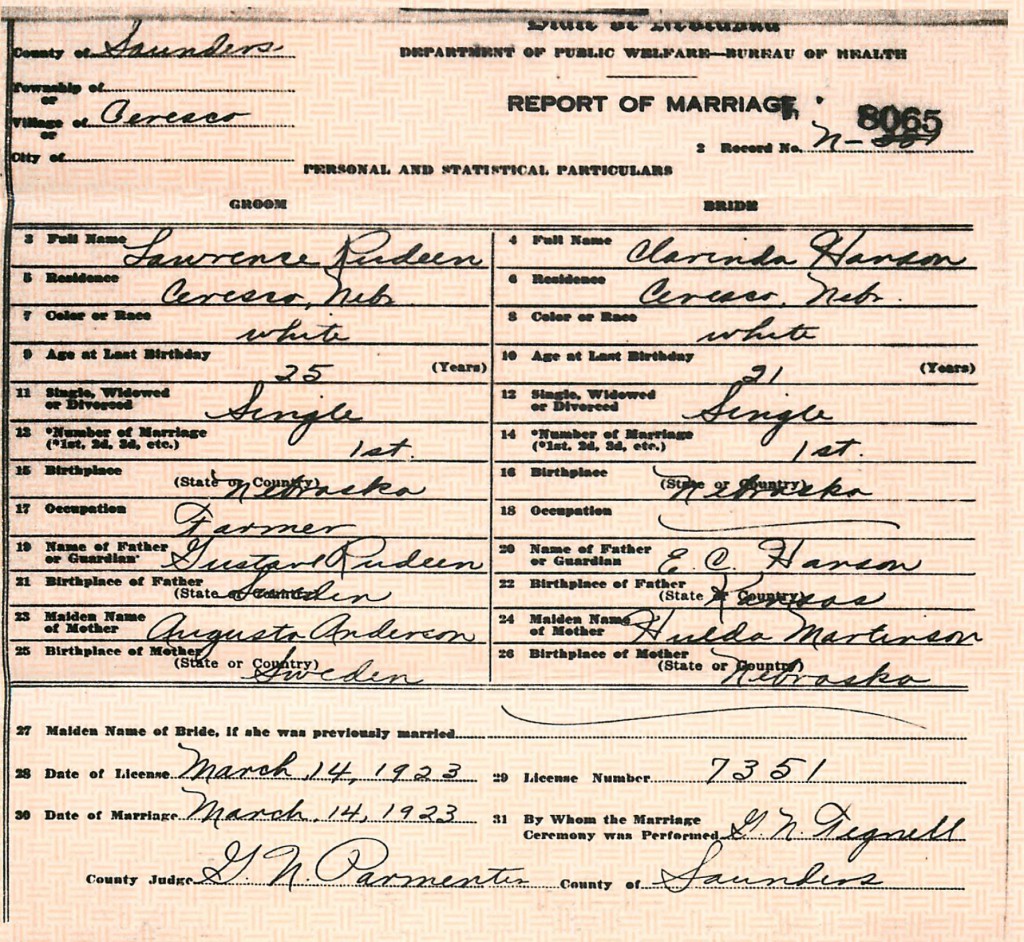 State of Nebraska
County of Saunders
DEPARTMENT OF PUBLIC WELFARE—BUREAU OF HEALTH
Township of
or
REPORT OF MARRIAGE
Village of Ceresco
8065
or
2 Record No. N-
City of
PERSONAL AND STATISTICAL PARTICULARS
GROOM BRIDE
3 Full Name Lawrence Rudeen
4 Full Name Clarinda Hanson
5 Residence Ceresco, Nebr.
6 Residence Ceresco, Nebr.
7 Color or Race white
8 Color or Race white
9 Age at Last Birthday 25 (Years)
10 Age at Last Birthday 21 (Years)
11 Single, Widowed
or Divorced Single
12 Single, Widowed
or Divorced Single
13 *Number of Marriage
(*1st, 2d, 3d, etc.) 1st.
14 *Number of Marriage
(*1st, 2d, 3d, etc.) 1st.
15 Birthplace
(State or Country) Nebraska
16 Birthplace
(State or Country) Nebraska
17 Occupation Farmer
18 Occupation
19 Name of Father
or Guardian Gustav Rudeen
20 Name of Father
or Guardian E. C. Hanson
21 Birthplace of Father
(State or Country) Sweden
22 Birthplace of Father
(State or Country) Kansas
23 Maiden Name
of Mother Augusta Anderson
24 Maiden Name
of Mother Hulda Martinson
25 Birthplace of Mother
(State or Country) Sweden
26 Birthplace of Mother
(State or Country) Nebraska
27 Maiden Name of Bride, if she was previously married
28 Date of License March, 14, 1923 29 License Number 7351
30 Date of Marriage March, 14, 1923 31 By Whom the Marriage
Ceremony was Performed G. N. Tegnell
County Judge G. N. Parmenter County of Saunders